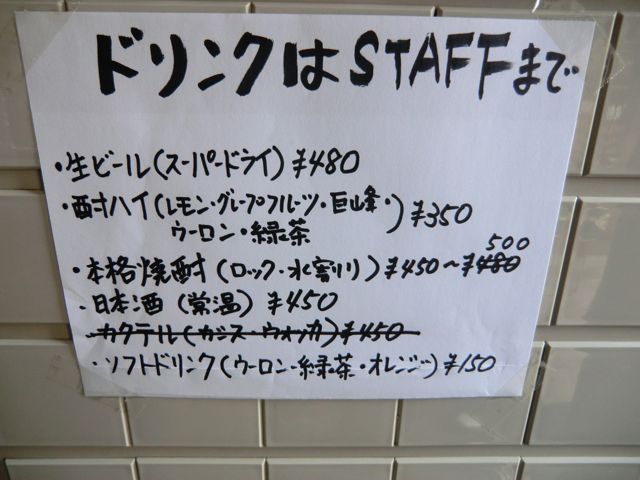 ドリンクはSTAFFまで
・生ビール(スーパードライ)¥480
・酎ハイ(レモン・グレープフルーツ・巨峰・
ウーロン・緑茶)¥350
500
・本格焼酎(ロック・水割り)¥450～¥480
・日本酒(常温)¥450
カクテル(カシス・ウォッカ)¥450
・ソフトドリンク(ウーロン・緑茶・オレンジ)¥150